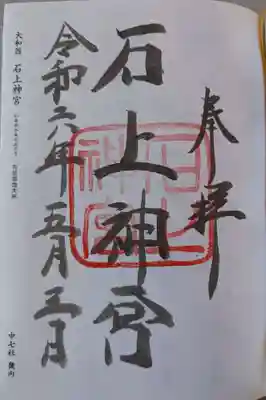 奉拝
石上神宮
令和六年五月三日
大和国 石上神宮
中七社 畿内
石上神宮